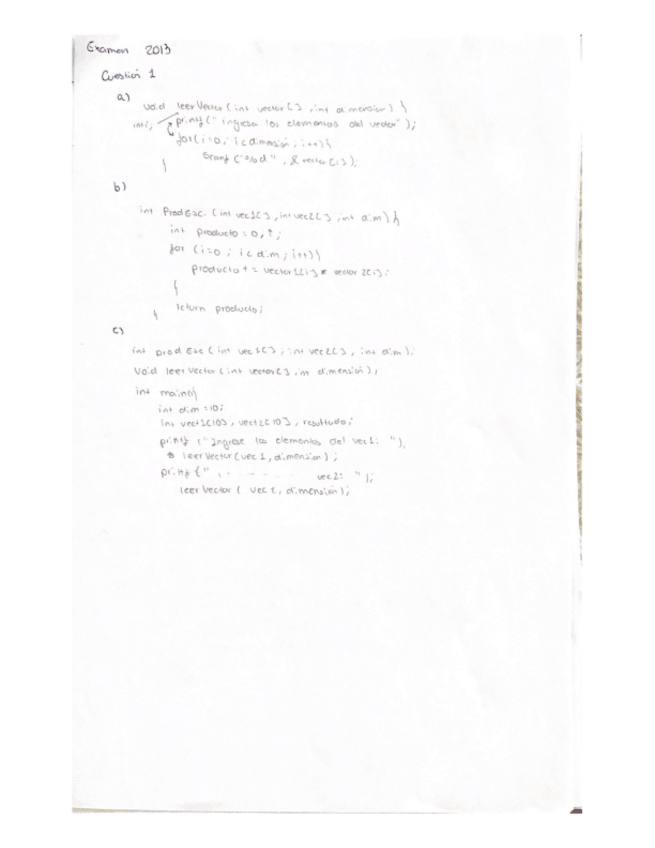 Examen 2013
Cuestión 1
a)
void leerVector (int vector[], int dimension) {
int i;
printf (" ingresa los elementos del vector");
for (i=0; i<dimensión; i++){
scanf ("%d", & vector[i]);
}
b)
int ProdEsc. (int vec1[], int vec2[], int dim) {
int producto = 0, i;
for (i=0; i< dim; i++){
producto += vector1[i] * vector2[i];
}
return producto;
}
c)
int prod Esc (int vec1[], int vec2[], int dim);
Void leerVector (int vector[], int dimensión);
int main(){
int dim =10;
int vect1[10], vect2[10], resultado;
printf ("Ingrese los elementos del vec1: ");
leerVector (vec1, dimension);
printf (" . - - - - . vec2: ");
leerVector ( vec2, dimensión);